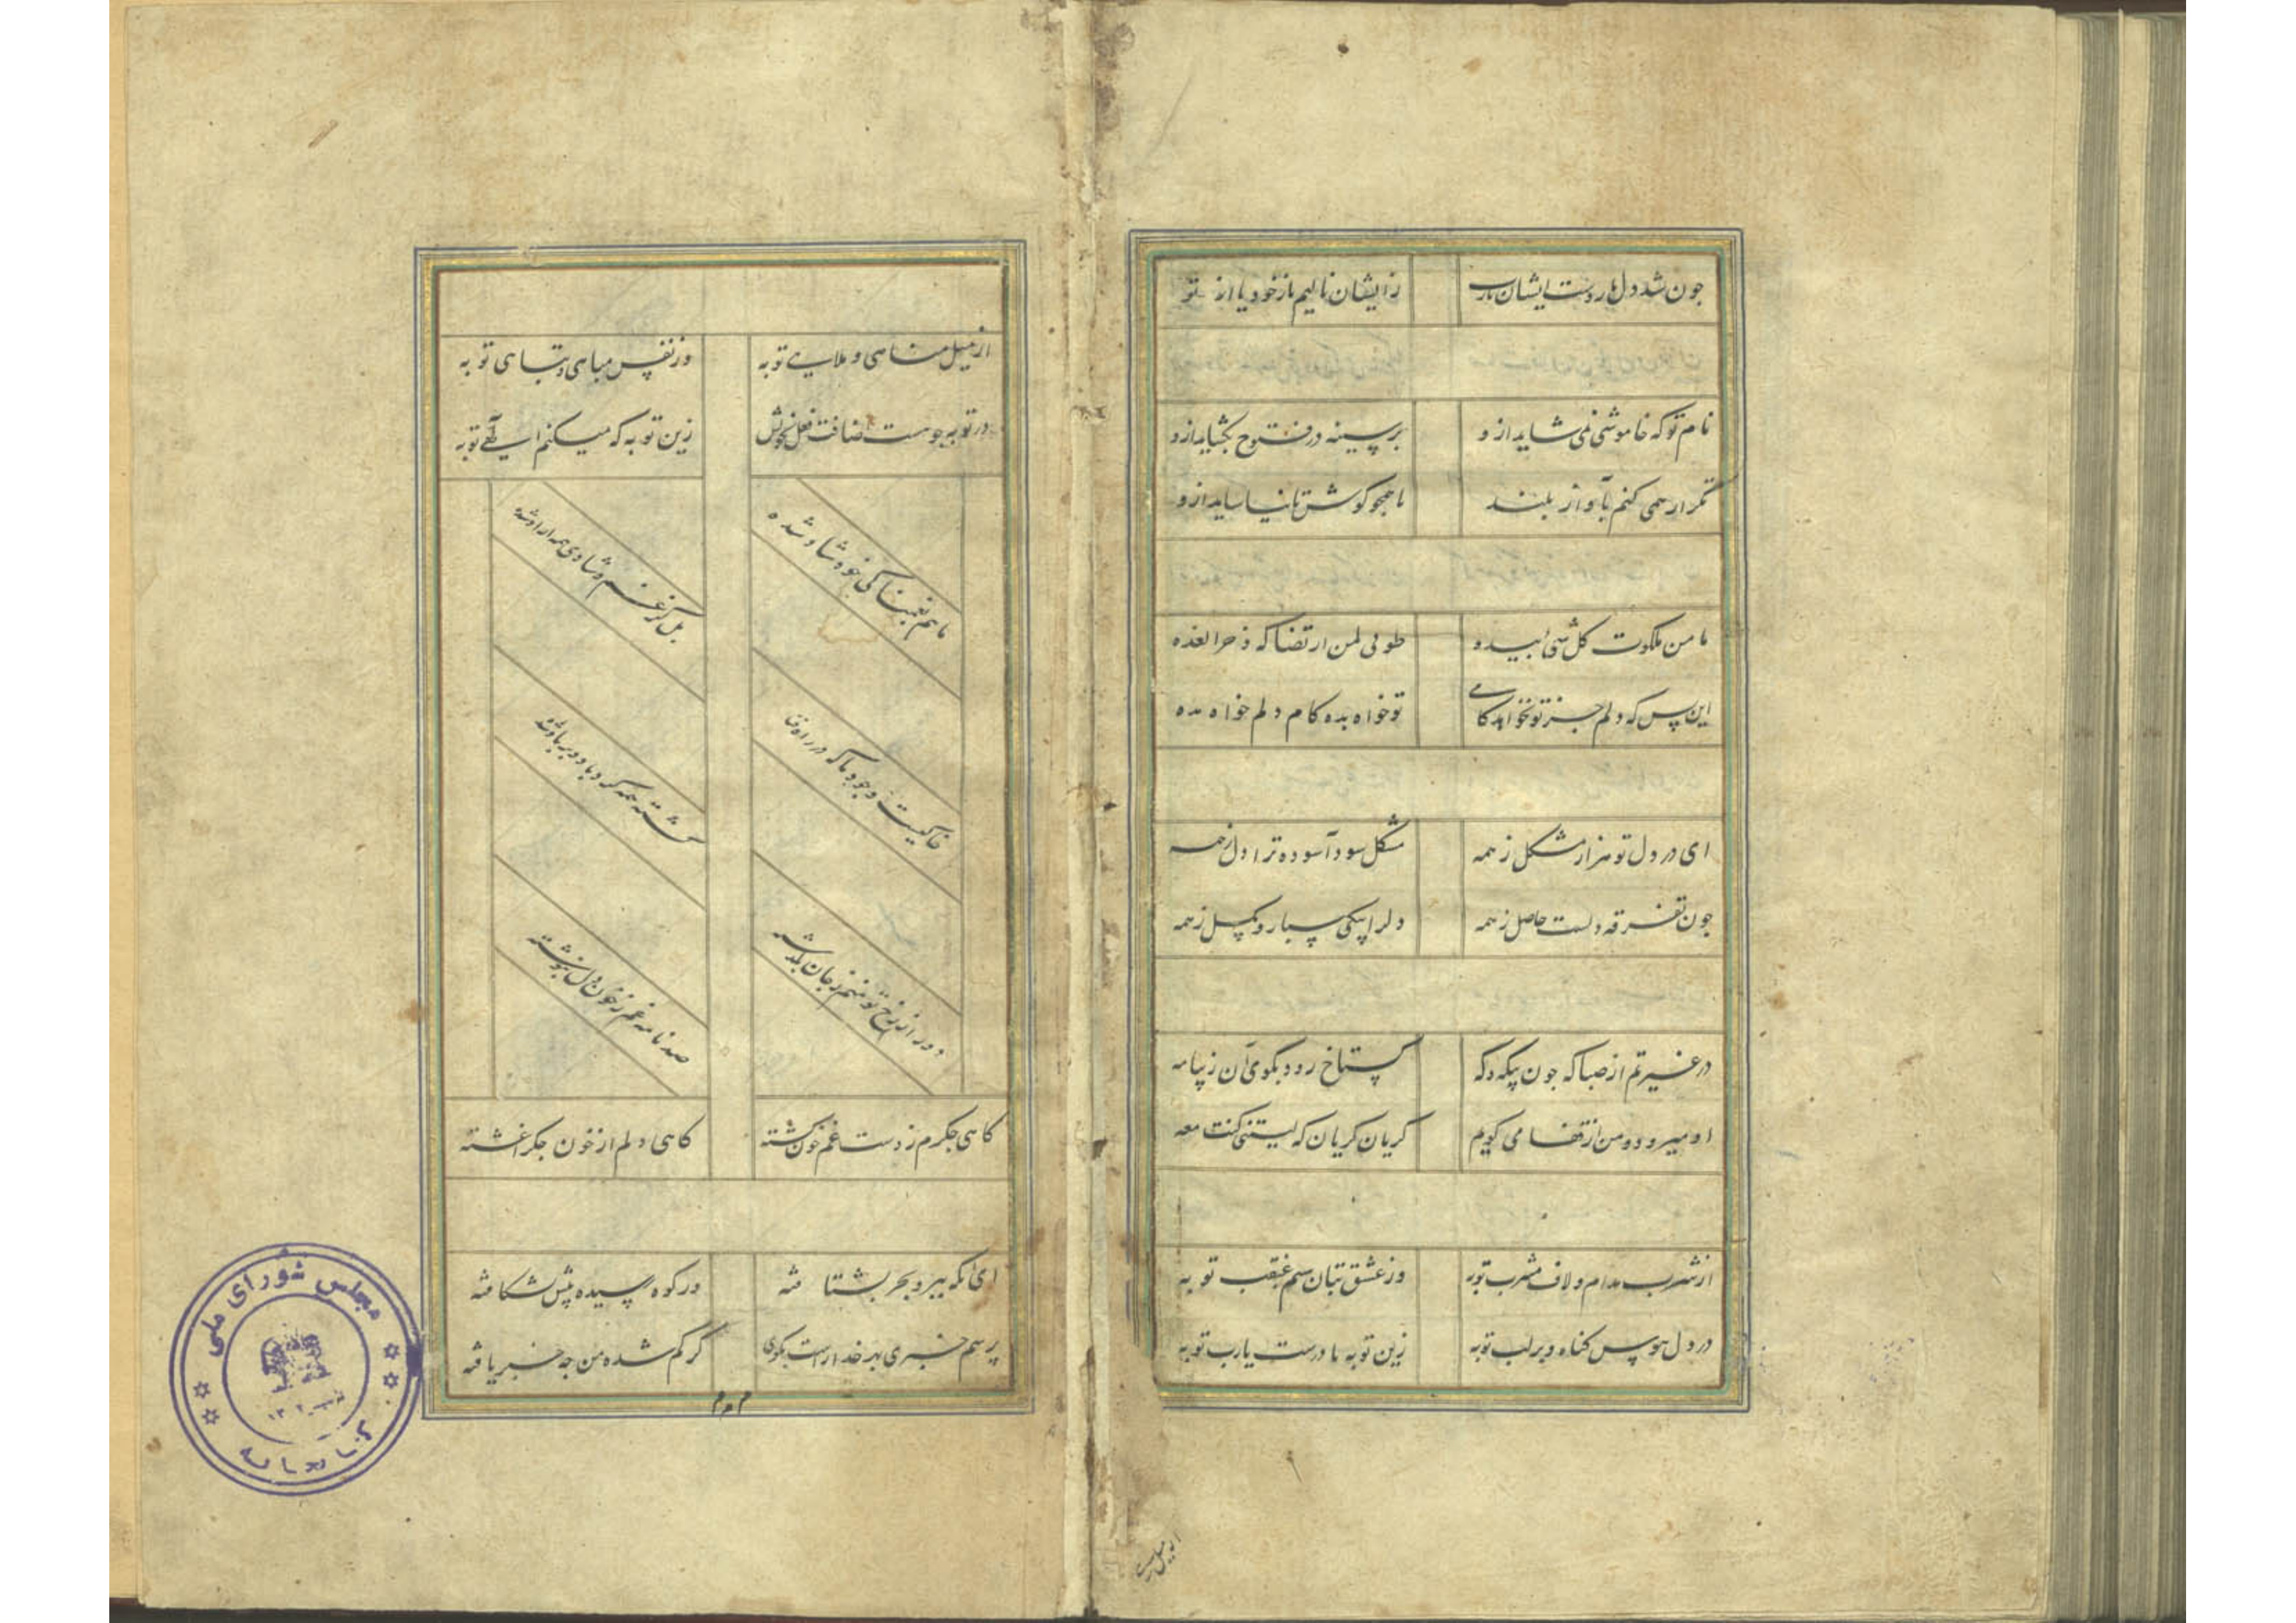 چون شد دلها روست ایشان یارب زایشان نالیم یا ز خود یا از تو
نام تو که خاموشی نمی شاید ازو بر سینه در فتوح بگشاید ازو
تکرار همی کنم بآواز بلند تا همچو گوش تا بیاساید ازو
یا من ملکوت کل شی بیده طوبی لمن ارتضاک ذخرا لغده
این بس که دلم جز تو نخواهد کامی تو خواه بده کام دلم خواه مده
ای در دل تو هزار مشکل ز همه مشکل شود آسوده ترا دل ز همه
چون تفرقه دلست حاصل ز همه دلرا بیکی سپار و بگسل ز همه
در غیرتم از صبا که چون بیکه و گه گستاخ رود بکوی آن زیبا مه
او میرود و من از قفا می گویم گریان گریان که لیتنی کنت معه
از شرب مدام و لاف مشرب توبه وز عشق بتان سیم غبغب توبه
در دل هوس گناه و بر لب توبه زین توبه نا درست یارب توبه
از میل
از میل مناهی و ملاهی توبه وز نفس مباهی و تباهی توبه
در توبه چو هست اضافت فعل بخویش زین توبه که میکنم الهی توبه
ما هم نعیمناکی خود شاد شده بل کز غم و شادی همه آزاد شده
خاکیست وجود ما که در راه گشته همه گرد باد و بر باد شده
دور از رخ تو منم ز جان صد نامه غم ز خون دل بنوشته
گاهی جگرم ز دست غم خون گشته گاهی دلم از خون جگر آغشته
ای آنکه ببر و بحر بشتافته در کوه رسیده پیش شکافته
پرسم خبری بهر خدا راست بگوی کز گم شده من چه خبر یافته
مجلس شورای ملی
کتابخانه